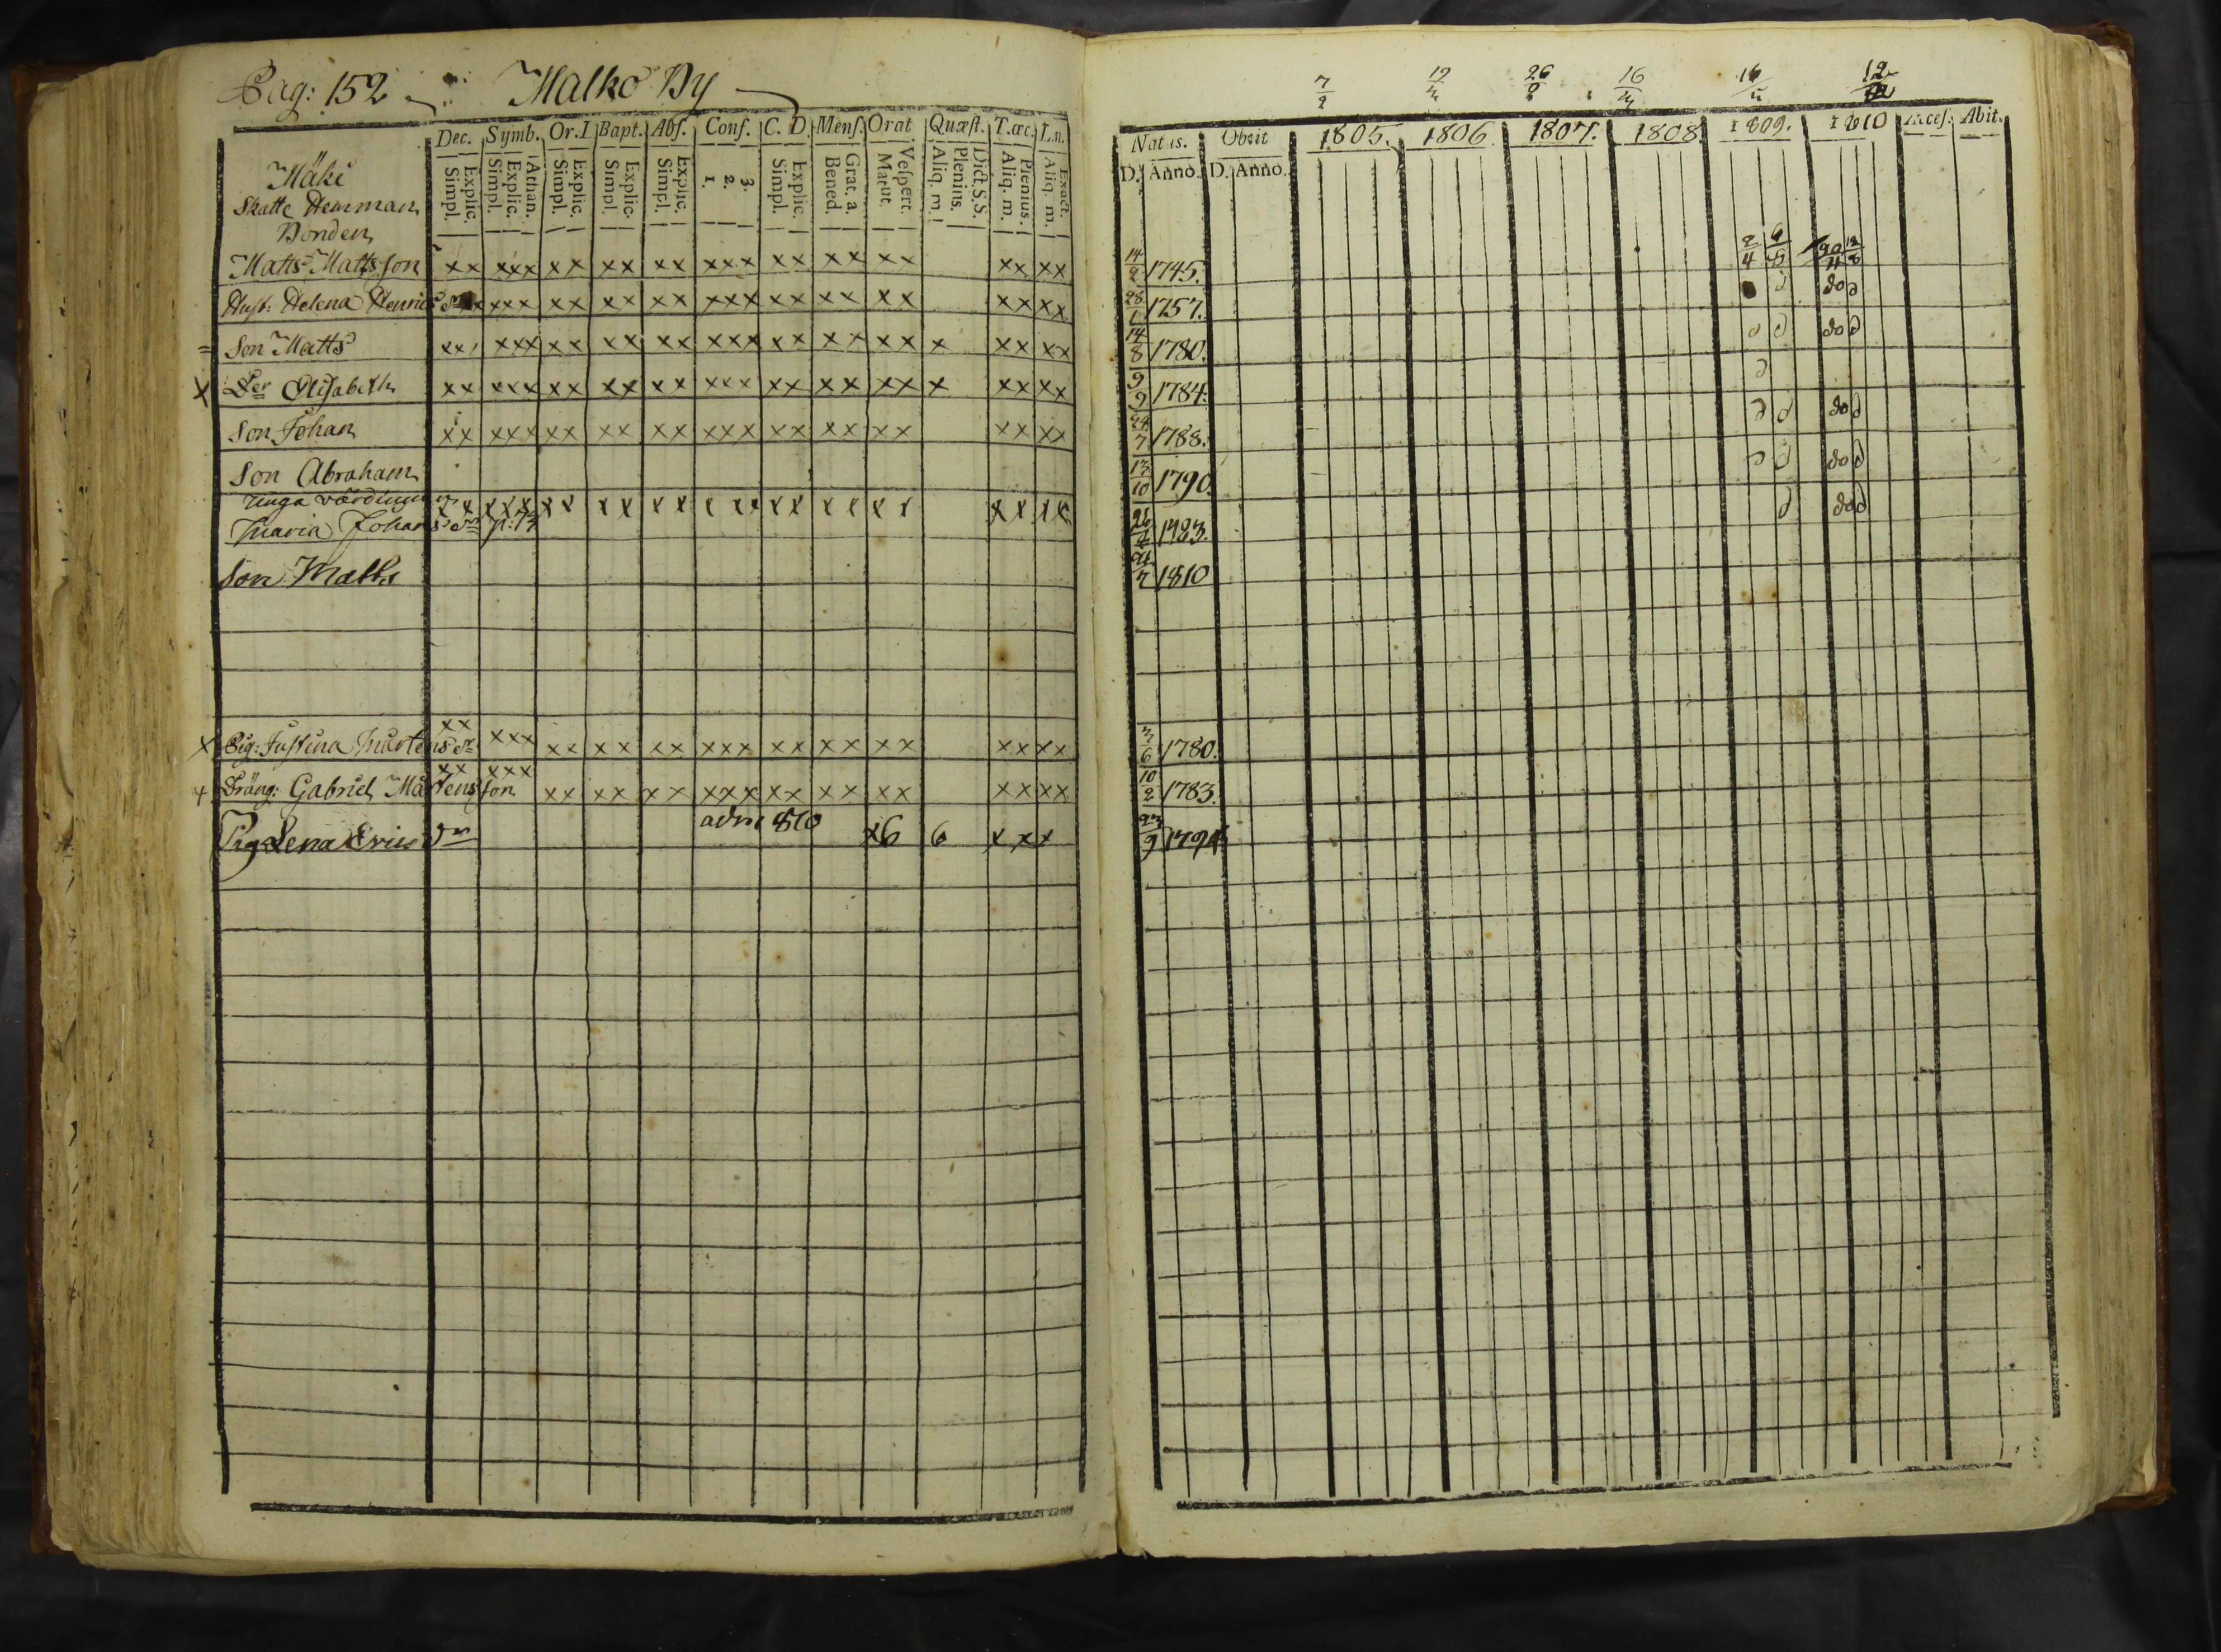 Pag: 152 Malko By
Dec. Symb. Or. D Bapt. Abs. Conf. C. D. Mens. Orat Quæst. T. œc. L. n.
Explic. Simpl. Athan. Explic. Simpl. Explic. Simpl. Explic. Simpl. Explic. Simpl. 3. 2. 1. Explic. Simpl. Grat. a. Bened. Vespert. Matut. Dict. S. S. Plenius. Aliq. m. Plenius. Aliq. m. Exact. Aliq. m.
Mäki
Skatte Hemman
Bonden
Matts Mattsson xx xxx xx xx xx xxx xx xx xx xx xx
Hust: Helena Henrics dr xxx xx xx xx xxx xx xx xx xx xx
= Son Matts xx xxx xx xx xx xxx xx xx xx x xx xx
x Dr Elisabeth xx xxx xx xx xx xxx xx xx xx x xx xx
Son Johan xx xxx xx xx xx xxx xx xx xx xx xx
Son Abraham
unga värdinnan xx xxx xx xx xx xxx xx xx xx xx xx
Maria Johans dr p: 73
Son Matts
xx
x Pig: Justina Mårtens dr xxx xx xx xx xxx xx xx xx xx xx
xx xxx
+ Dräng: Gabriel Mårtensson xx xx xx xxx xx xx xx xx xx
Pig Lena Erics dr adm 810 x6 6 x xx
7/2 12/4 26/2 16/4 16/4 12
Natus. Obiit 1805. 1806 1807. 1808 1809. 1810 Acces. Abit.
D. Anno. D. Anno.
14/2 1745. 2/4 6/5 12/8
28/1 1757. do
14/8 1780. do
9/9 1784.
24/7 1788. do
13/10 1790. do
26 1783. do
1810
3/6 1780.
10/2 1783.
23/9 1794